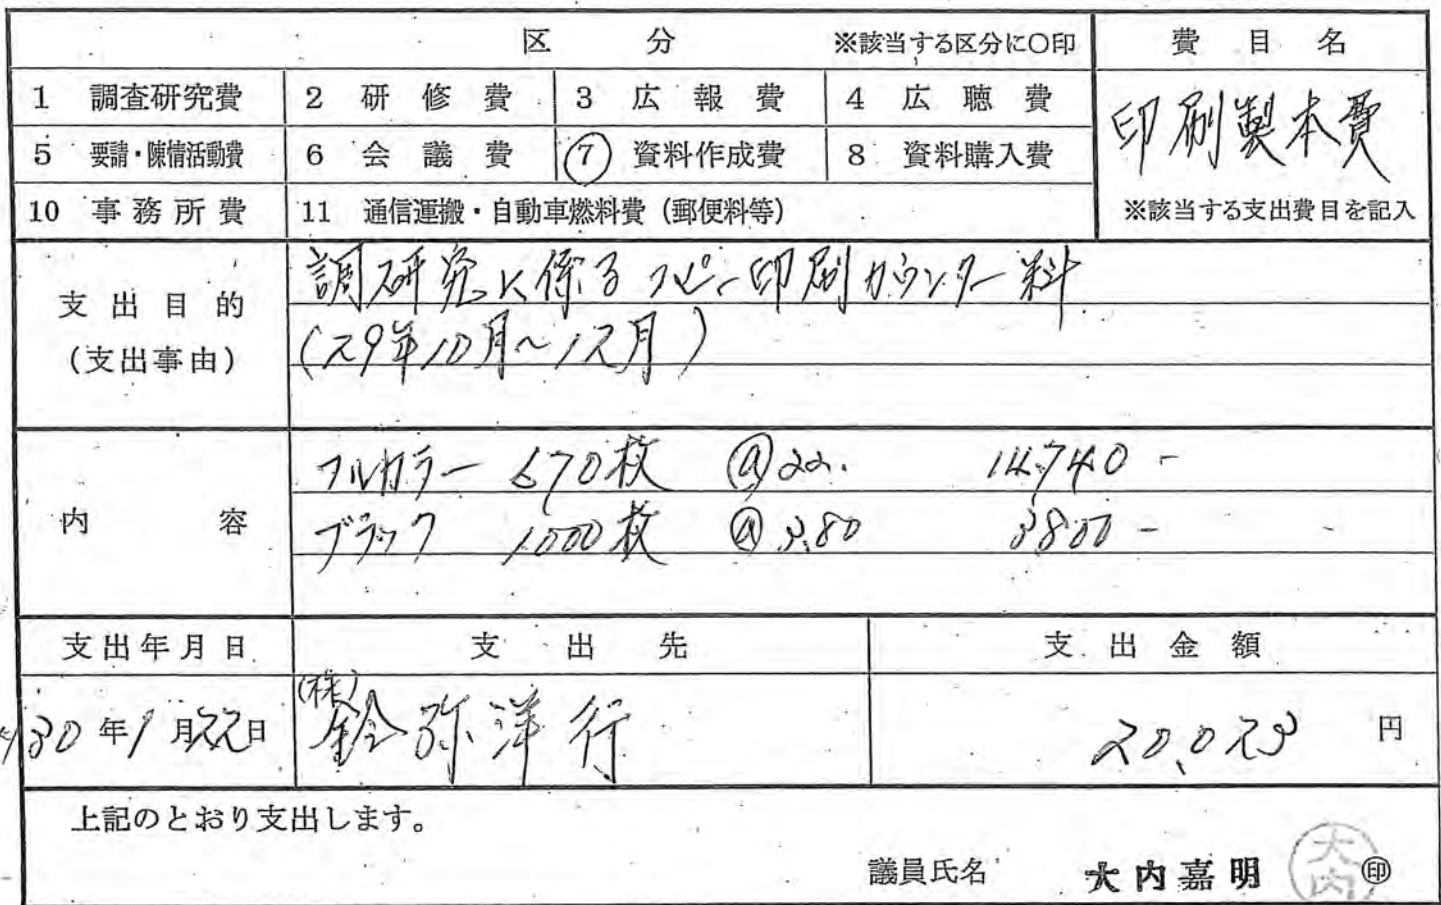 区分 ※該当する区分に○印 費目名
1 調査研究費 2 研修費 3 広報費 4 広聴費
印刷製本費
5 要請・陳情活動費 6 会議費 ⑦ 資料作成費 8 資料購入費
10 事務所費 11 通信運搬・自動車燃料費(郵便料等) ※該当する支出費目を記入
支出目的
(支出事由)
調研究に係るコピー印刷カウンター料
(29年10月~12月)
内容
フルカラー 670枚 @22. 14,740-
ブラック 1000枚 @3.80 3800-
支出年月日 支出先 支出金額
30年1月22日 (株)鈴弥洋行 20,023 円
上記のとおり支出します。
議員氏名 大内嘉明 ㊞
大内